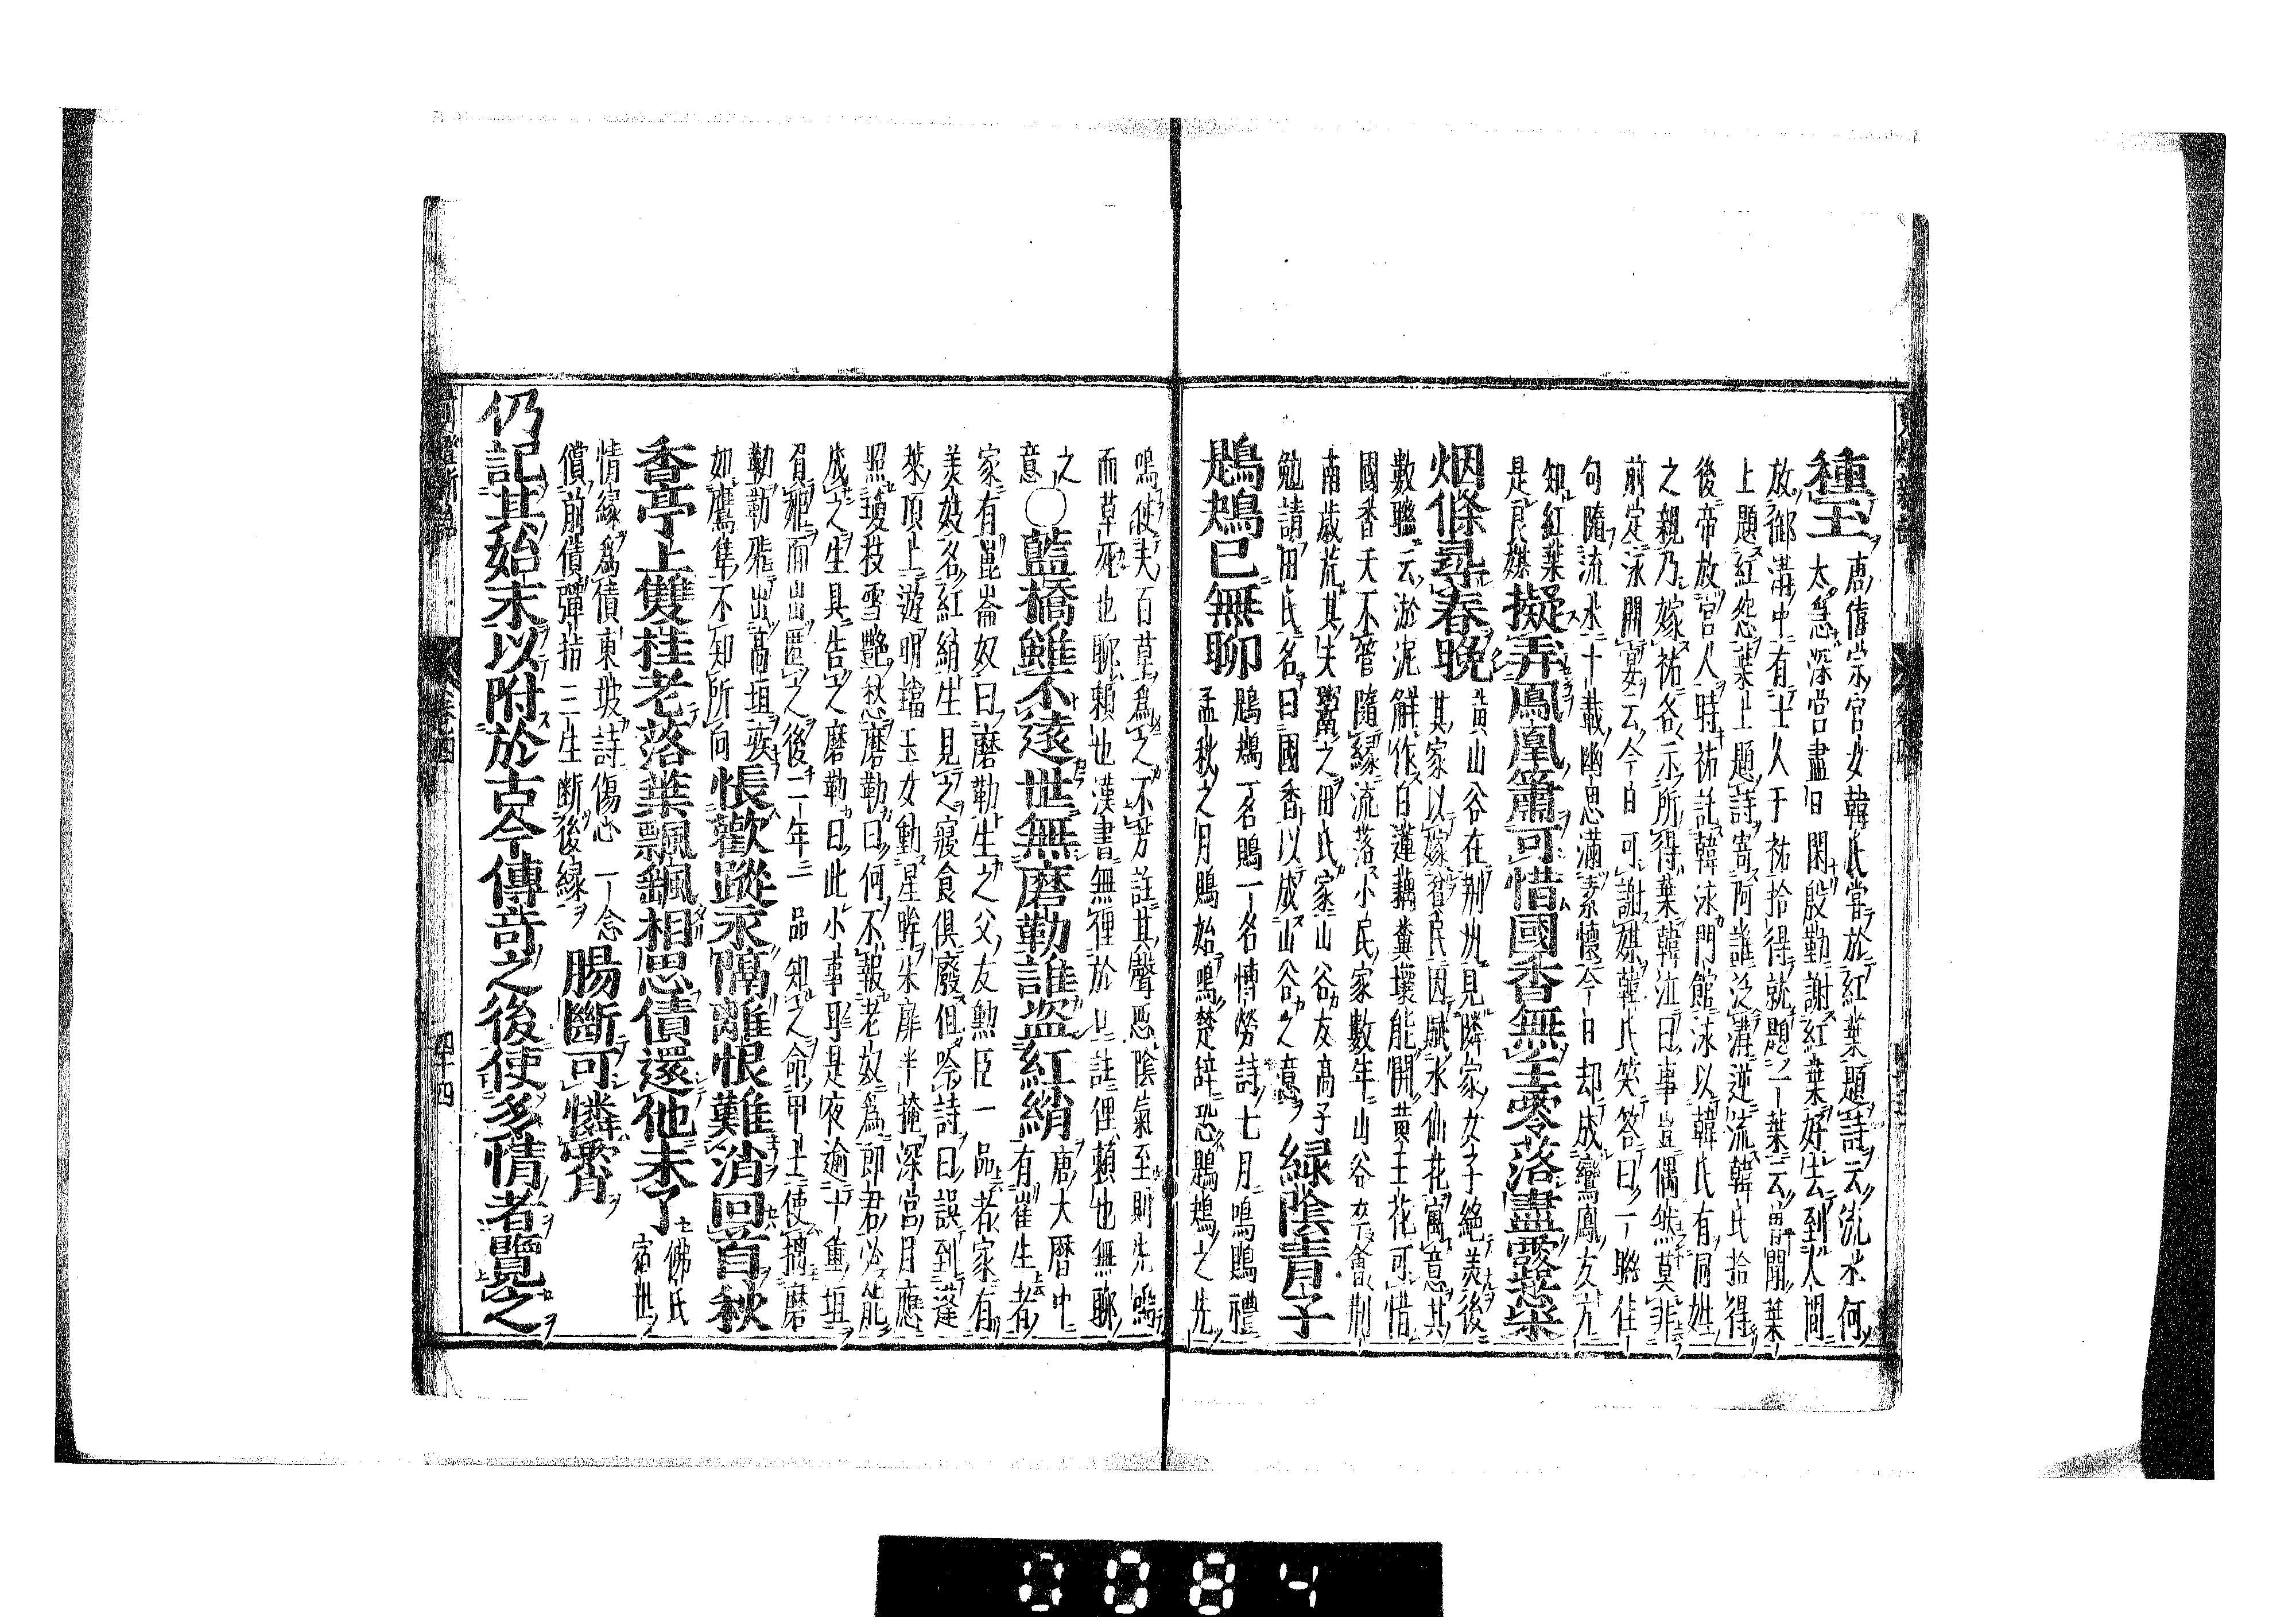 種玉
唐僖宗宮女韓氏嘗於紅葉題詩云流水何
太急深宮盡日閑殷勤謝紅葉好去到人間
放御溝中有士人于祐拾得就題一葉云曽聞葉
上題紅怨葉上題詩寄阿誰泛溝逆流韓氏拾得
後帝放宮人時祐託韓泳門館泳以韓氏有同姓
之親乃嫁祐各示所得葉韓泣曰事豈偶然莫非
前定泳開宴云今日可謝媒韓氏笑答曰一聯佳
句隨流水十載幽思滿素懷今日却成鸞鳳友方
知紅葉
是良媒擬弄鳳凰簫可惜國香無主零落盡露蘂
烟條尋春晚
黄山谷在荆州見隣家女子絶美後
其家以嫁貧民因賦水仙花寓意其
數聯云淤泥解作白蓮藕糞壤能開黄玉花可惜
國香天不管隨縁流落小民家數年山谷卒會荆
南歳荒其夫鬻之田氏家山谷友高子
勉請田氏名曰國香以成山谷之意緑陰青子
鵾鴂已無聊
鵾鴂一名鵙一名博勞詩七月鳴鵙禮
孟秋之月鵙始鳴楚辞恐鵾鴂之先
鳴使夫百草爲之不芳註其聲惡陰氣至則先鳴
而草死也聊頼也漢書無俚於 註俚頼也無聊
之
意○藍橋雖不遠世無磨勒誰盗紅綃
唐大暦中
有崔生者
家有崑崙奴曰磨勒生之父友勲臣一品者家有
美妓名紅綃生見之寢食倶廢但吟詩曰誤到蓬
萊頂上遊明璫玉女動星眸朱扉半掩深宮月應
照瓊枝雪艶愁磨勒曰何不報老奴爲郎君必能
成之生具告之磨勒曰此小事耳是夜逾十重垣
負姫而出匿之後二年一品知之命甲士使擒磨
勒勒飛出高垣疾
如鷹隼不知所向悵歡蹤永隔離恨難消回首秋
香亭上雙桂老落葉飄颻相思債還他未了
佛氏
宿世
情縁爲債東坡詩傷心一念
償前債彈指三生断後縁腸斷可憐宵
仍記其始末以附於古今傳奇之後使多情者覽之
卷四
四十四
0084